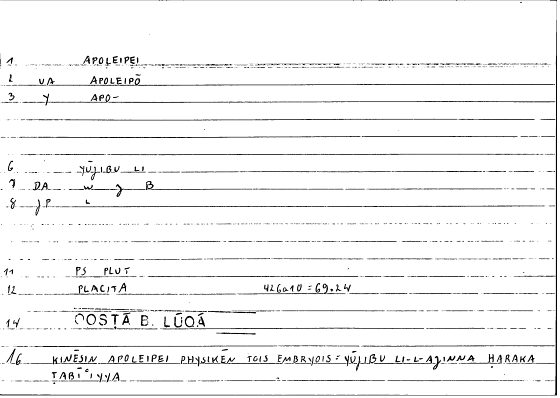 1. APOLEIPEI
2 VA APOLEIPŌ
3 Y APO-
6 YŪJIBU LI
7 DA W J B
8 JP L
11 PS PLUT
12 PLACITA 426a10 = 69.24
14 QOSṬĀ B. LŪQĀ
16 KINĒSIN APOLEIPEI PHYSIKĒN TOIS EMBRYOIS = YŪJIBU LI-L-AJINNA ḤARAKA
ṬABĪʿIYYA